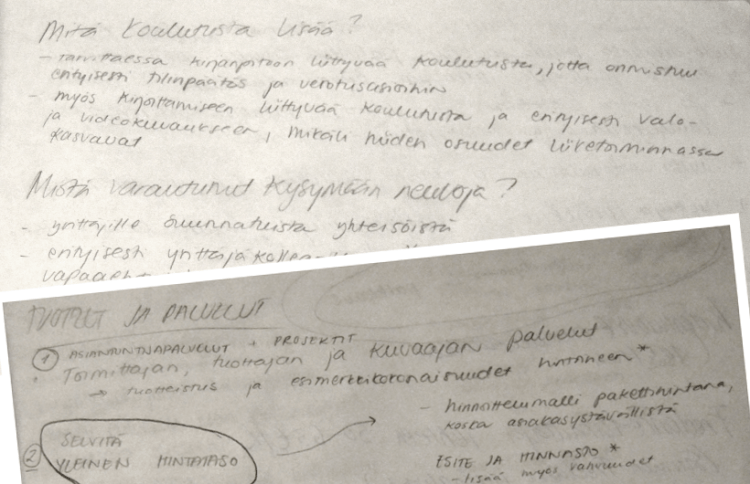 Mitä koulutusta lisää?
- tarvittaessa kirjanpitoon liittyvää koulutusta, jotta onnistuu
erityisesti tilinpäätös ja verotusasioihin
- myös kirjoittamiseen liittyvää koulutusta ja erityisesti valo-
ja videokuvaukseen, mikäli niiden osuudet liiketoiminnassa
kasvavat
Mistä varautunut kysymään neuvoja?
- yrittäjille suunnatuista yhteisöistä
- erityisesti yrittäjä
TUOTTEET JA PALVELUT
① ASIANTUNTIJAPALVELUT + PROJEKTIT
Toimittajan, tuottajan ja kuvaajan palvelut
→ tuotteistus ja esimerkkikokonaisuudet hintoineen *
- hinnoittelumalli pakettihintana,
koska asiakasystävällistä
② SELVITÄ
YLEINEN HINTATASO
ESITE JA HINNASTO *
- lisää myös vahvuudet